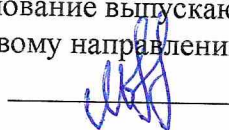 нование выпускаю
вому направлени